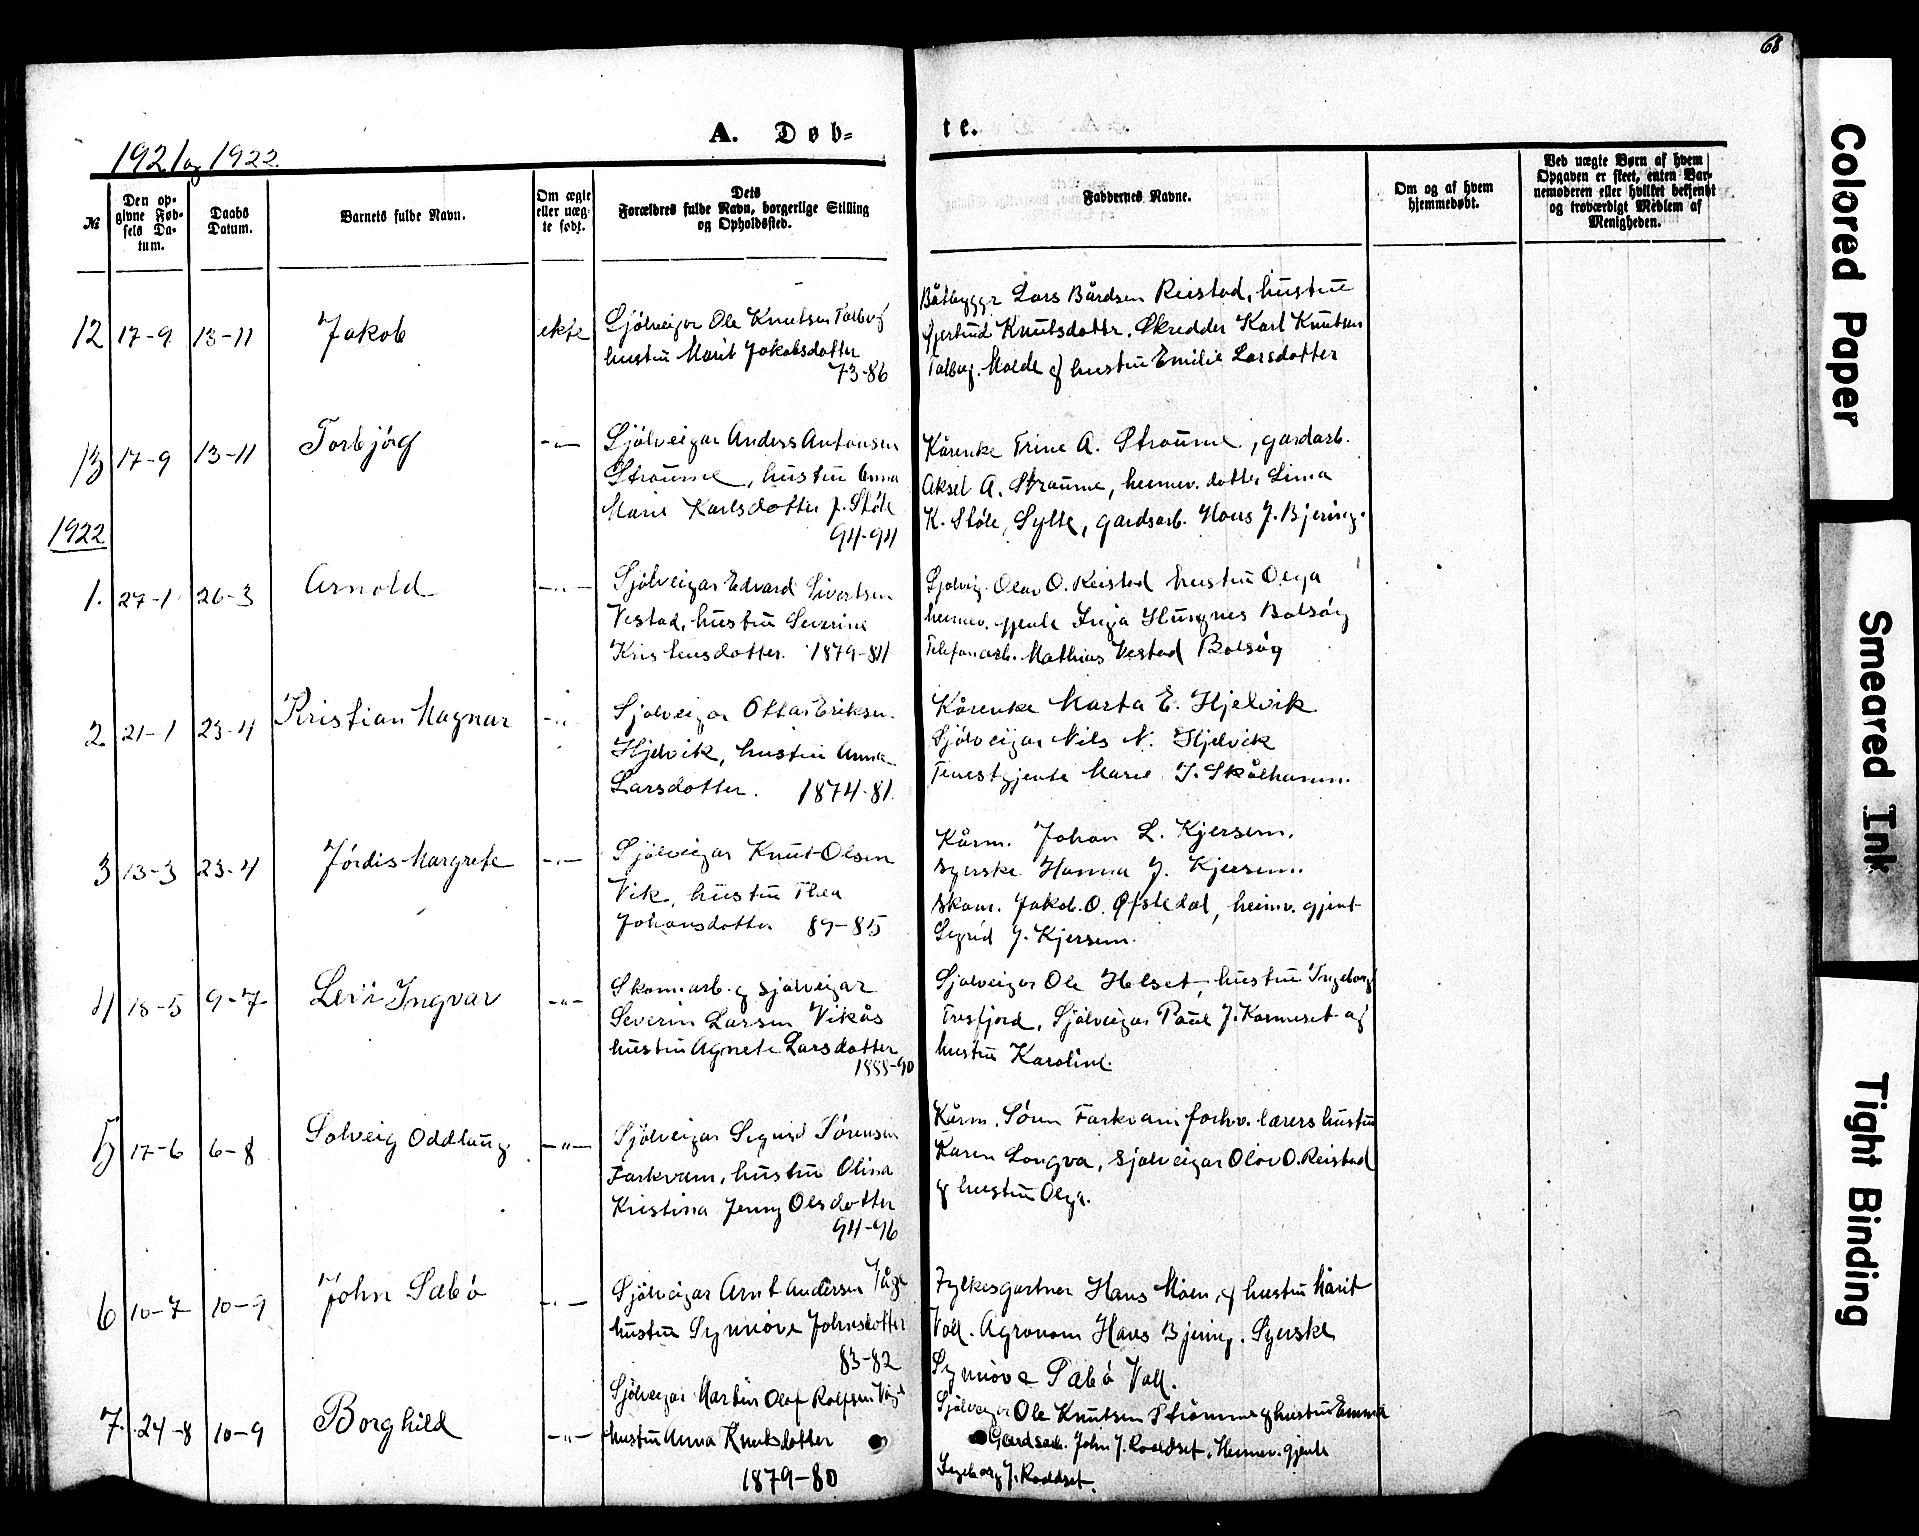 68
A. Døb-
te.
1921 og 1922.
№
Den op-
givne Fød-
sels Da-
tum.
Daabs
Datum.
Barnets fulde Navn.
Om ægte
eller uæg-
te født.
Dets
Forældres fulde Navn, borgerlige Stilling
og Opholdssted.
Faddernes Navne.
Om og af hvem
hjemmedøbt.
Ved uægte Børn af hvem
Opgaven er skeet, enten Bar-
nemoderen eller hvilket bekjendt
og troværdigt Medlem af
Menigheden.
12 17-9 13-11 Jakob ekte
Sjølveigar Ole Knutsen Talberg
hustru Marit Jakobsdotter
73-86
Båtbyggr Lars Bårdsen Reistad, hustru
Gjertrud Knutsdottr. Skredder Karl Knutsen
Talberg. Molde og hustru Emilie Larsdotter
13 17-9 13-11 Torbjørg -"-
Sjølveigar Anders Antonsen
Straume, hustru Anna
Marie Karlsdotter f. Støle
94-94
Kårenke Trine A. Straume, gardarb.
Aksel A. Straume, heimev. dotter Lina
K. Støle, Sylte, gardsarb. Hans J. Bjering.
1922
1. 27-1 26-3 Arnold -"-
Sjølveigar Edvard Sivertsen
Vestad, hustru Severine
Kristensdotter. 1879-81
Sjølveig. Olav O. Reistad hustru Olga
heimev. gjente Inga Hungnes Bolsøy
Telefonarb. Mathias Vestad Bolsøy
2 21-1 23-4 Kristian Magnar -"-
Sjølveigar Ottar Eriksen
Hjelvik, hustru Anna
Larsdotter. 1874-81.
Kårenke Marta E. Hjelvik
Sjølveigar Nils N. Hjelvik
Tenestgjente Marie J. Skålhamn.
3 13-3 23-4 Jørdis Margrete -"-
Sjølveigar Knut Olsen
Vik, hustru Thea
Johansdotter 89-85
Kårm. Johan L. Kjersem.
Syerske Hanna J. Kjersem.
Skom. Jakob O. Øfstedal, heimv. gjent
Sigrid J. Kjersem.
4 18-5 9-7 Levi Ingvar -"-
Skomarb. og sjølveigar
Severin Larsen Vikås
hustru Agnete Larsdotter
1888-90
Sjølveigar Ole Helset, hustru Ingeborg
Tresfjord, Sjølveigar Paul J. Kormeset og
hustru Karoline.
5 17-6 6-8 Solveig Oddlaug -"-
Sjølveigar Sigurd Sørensen
Farkvam, hustru Olina
Kristina Jenny Olsdotter
94-96
Kårm. Søren Farkvam forhv. lærers hustru
Karen Longva, Sjølveigar Olav O. Reistad
og hustru Olga.
6 10-7 10-9 John Sæbø -"-
Sjølveigar Arnt Andersen Våge
hustru Synnøve Johnsdotter
83-82
Fylkesgartner Hans Moen, og hustru Marit
Voll. Agronom Hans Bjering. Syerske
Synnøve Sæbø Voll.
7. 24-8 10-9 Borghild -"-
Sjølveigar Martin Olaf Rolfsen Våge
hustru Anna Knutsdotter
1879-80
Sjølveigar Ole Knutsen Straume og hustru Emma
Gardsarb. John J. Roddset. Heimev. gjente
Ingeborg J. Roddset.
Colored Paper
Smeared Ink
Tight Binding